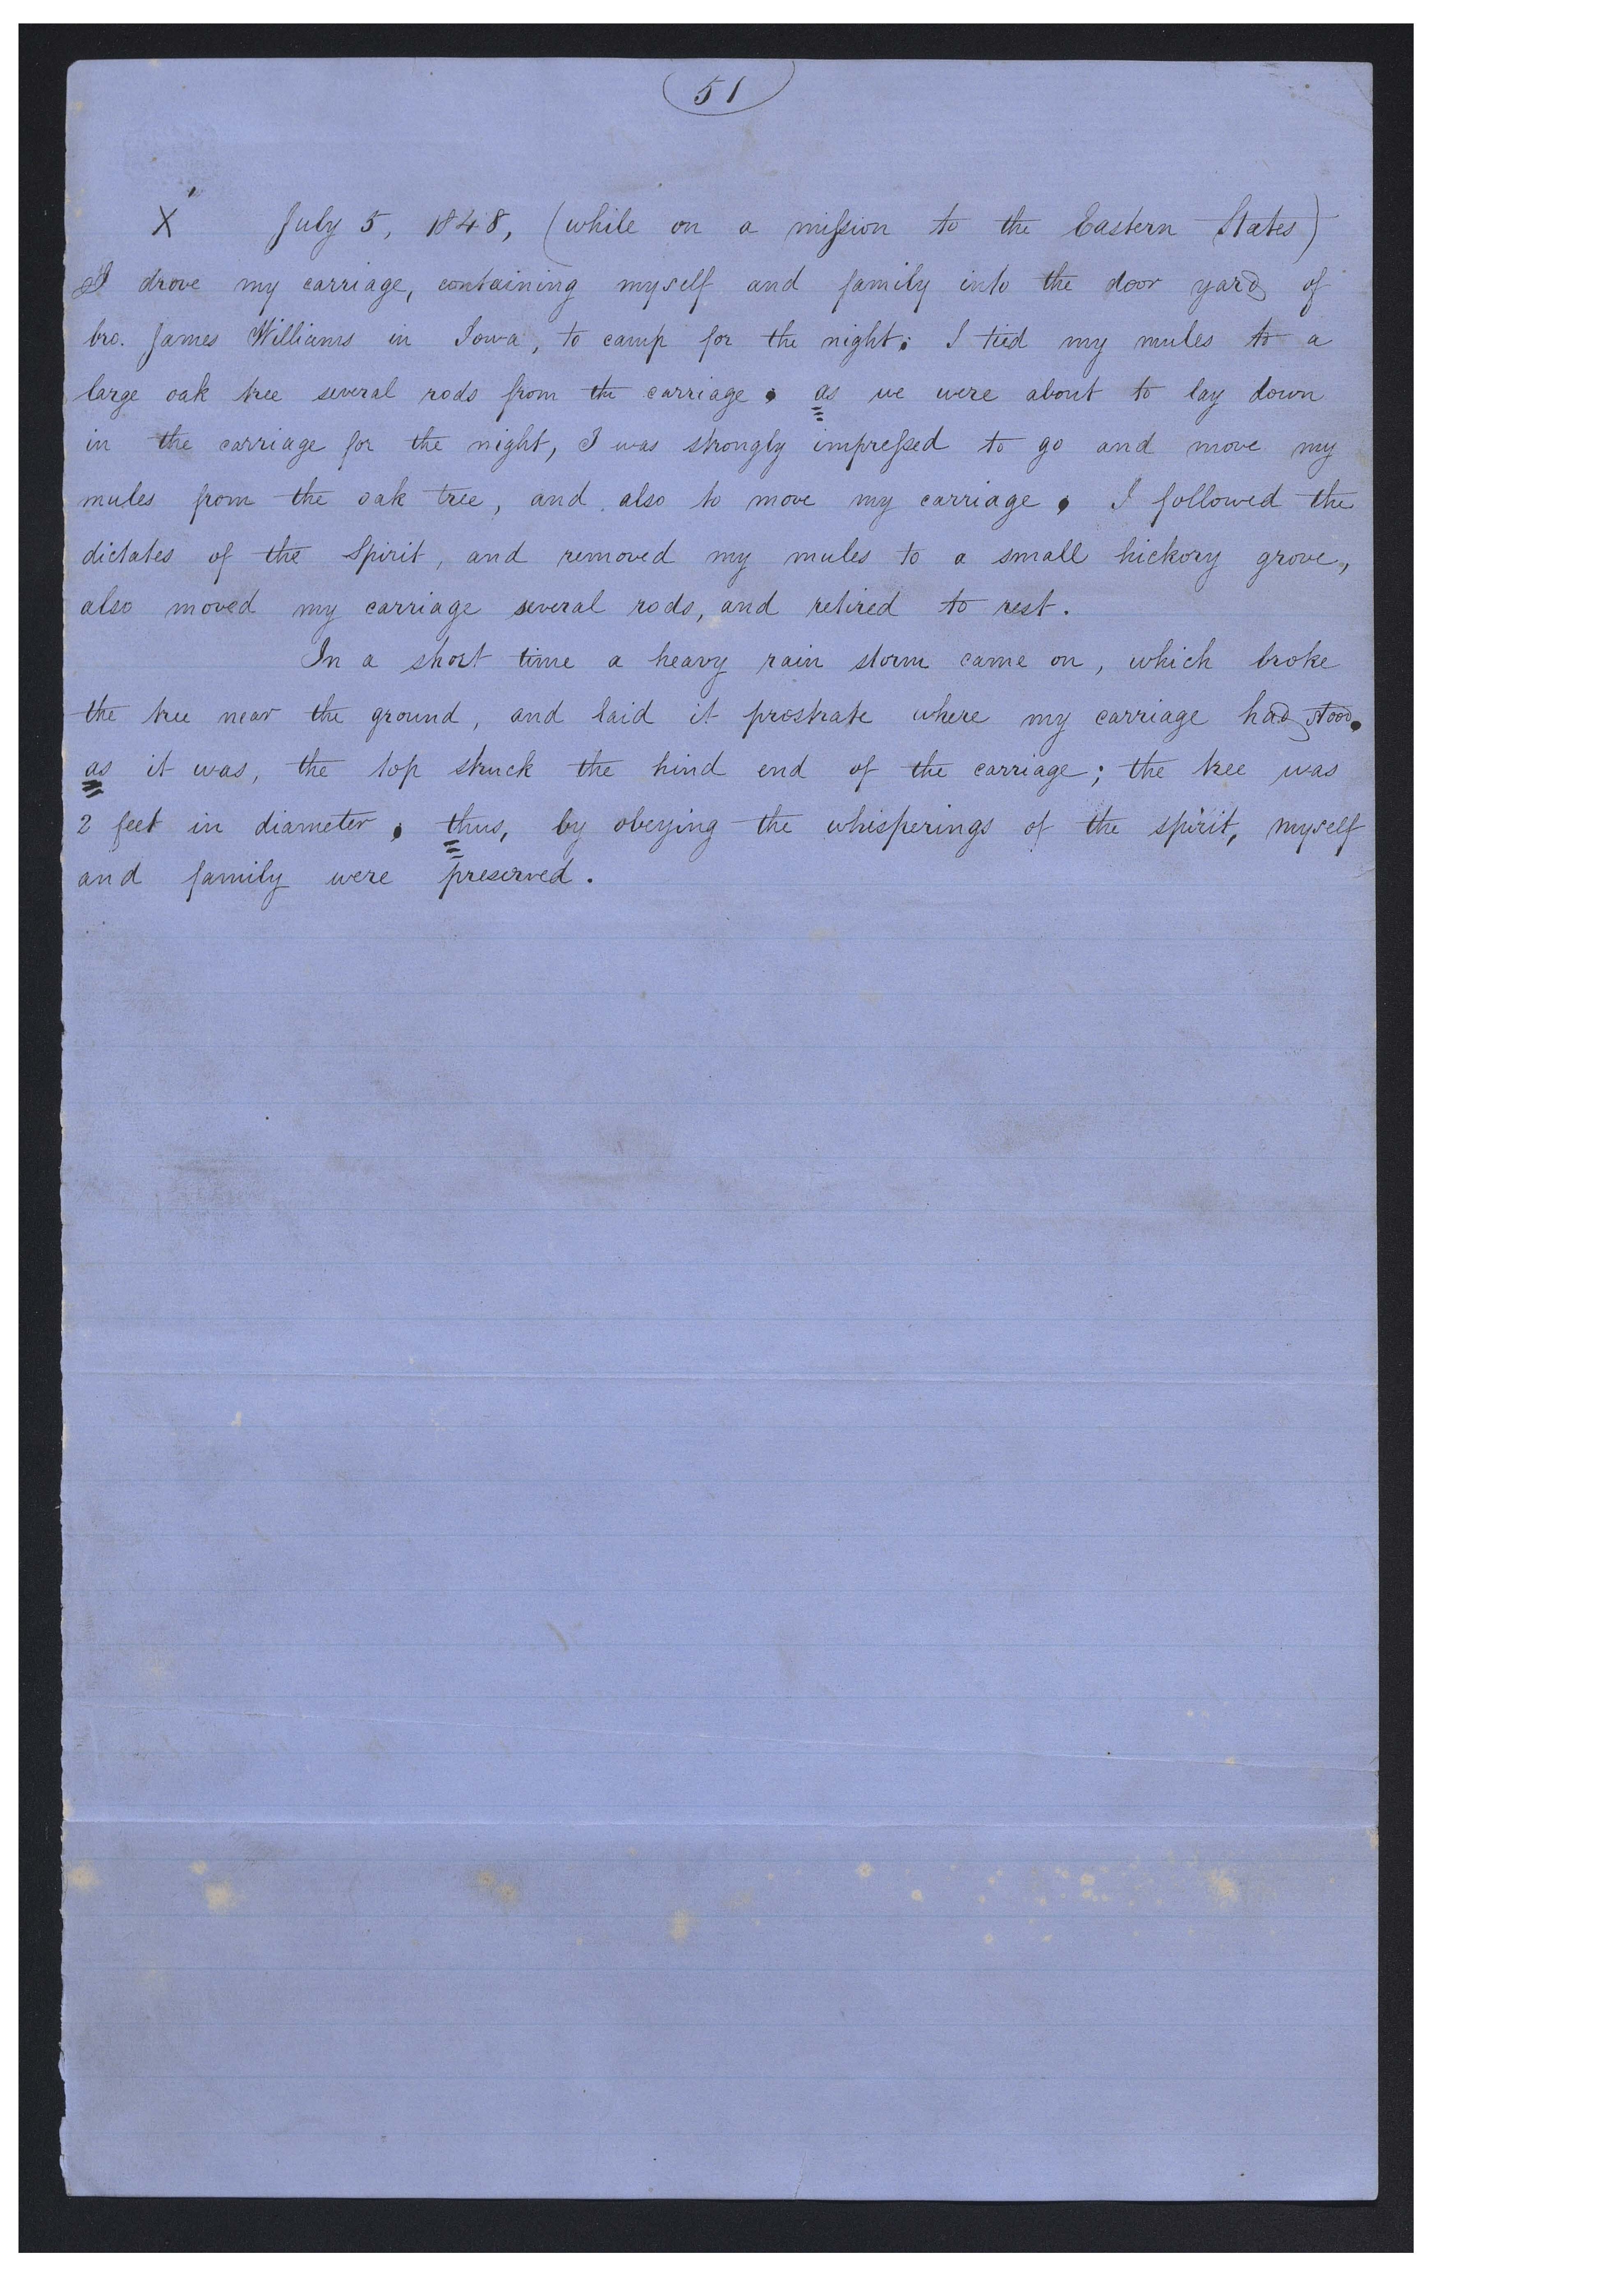 51
X" July 5, 1848, (while on a mission to the Eastern States)
I drove my carriage, containing myself and family into the door yard of
bro. James Williams in Iowa, to camp for the night. I tied my mules to a
large oak tree several rods from the carriage. as we were about to lay down
in the carriage for the night, I was strongly impressed to go and move my
mules from the oak tree, and also to move my carriage. I followed the
dictates of the Spirit, and removed my mules to a small hickory grove,
also moved my carriage several rods, and retired to rest.
In a short time a heavy rain storm came on, which broke
the tree near the ground, and laid it prostrate where my carriage had stood.
as it was, the top struck the hind end of the carriage; the tree was
2 feet in diameter. thus, by obeying the whisperings of the spirit, myself
and family were preserved.